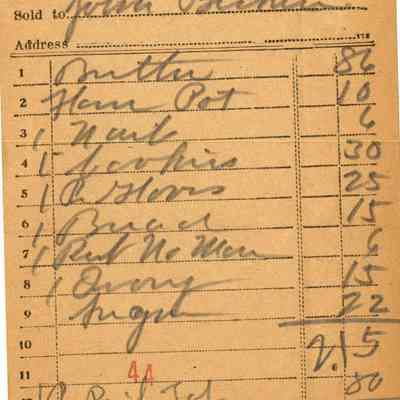 Sold to John
Address
1 Butter 86
2 Flour Pot 10
3 1 Nails 6
4 5 Cookies 30
5 1 P. Gloves 25
6 1 Bread 15
7 1 Rub No More 6
8 1 Ivory 15
9 Sugar 22
10 2.15
11 44 80